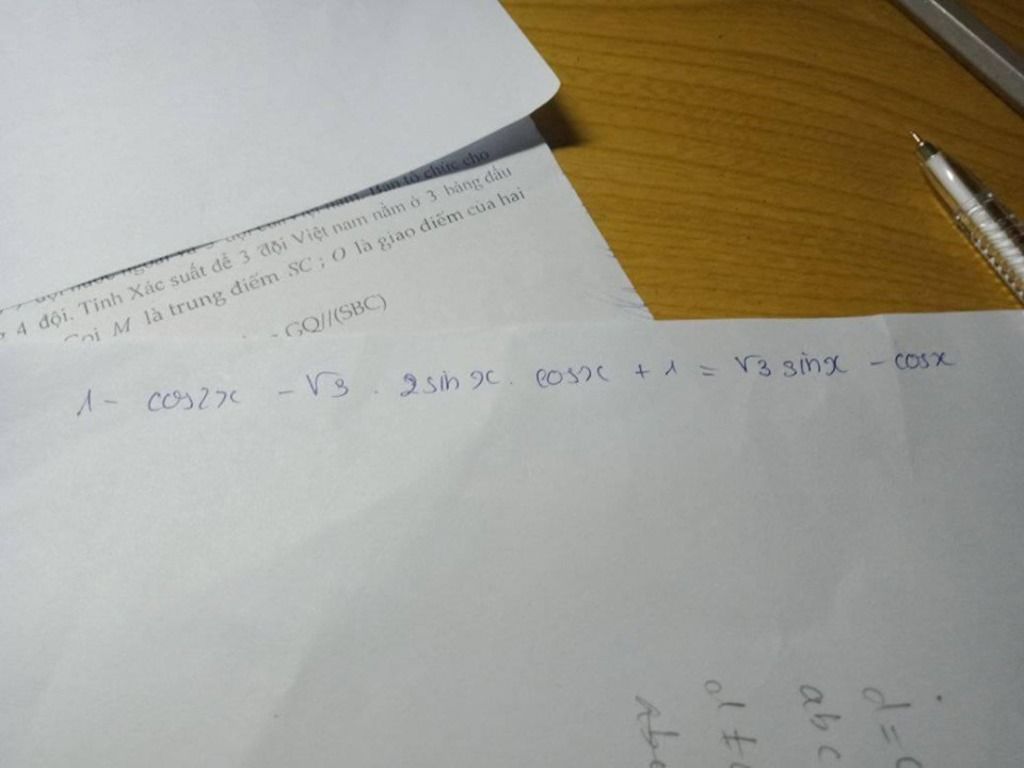 Ban tổ chức cho
4 đội. Tính Xác suất để 3 đội Việt nam nằm ở 3 bảng đấu
Gọi M là trung điểm SC ; O là giao điểm của hai
GQ//(SBC)
1 - cos2x - √3 . 2sin x . cosx + 1 = √3 sinx - cosx
d =
abc
d